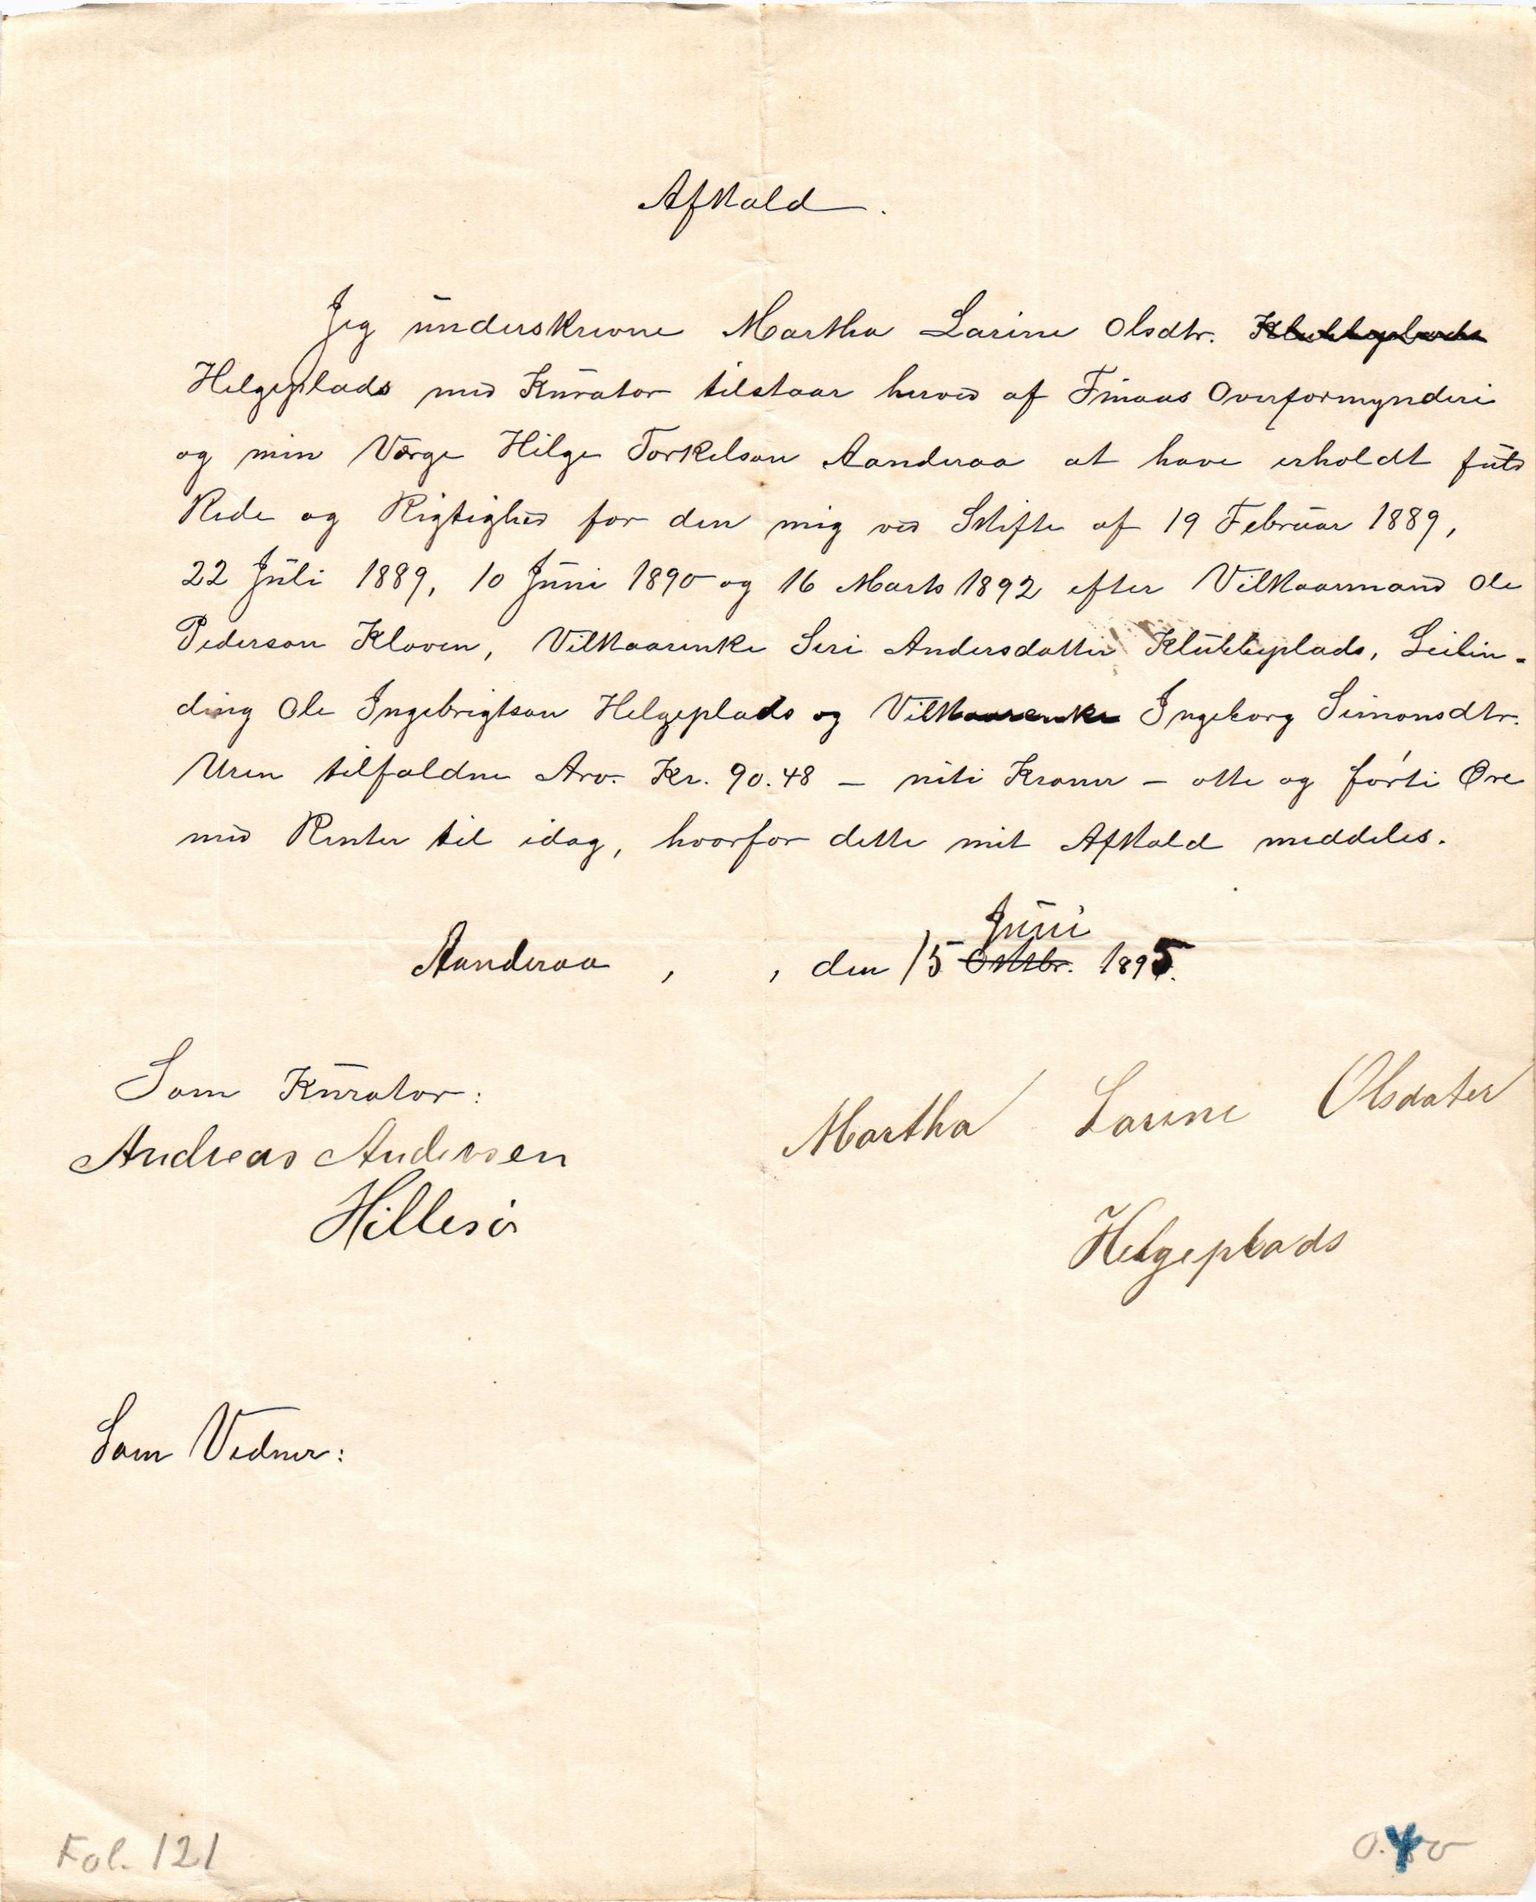 Afkald.
Jeg underskrevne Martha Larine Olsdtr. Klubbeplads
Helgeplads med Kurator tilstaar herved af Finaas Overformynderi
og min Værge Helge Torkelson Aanderaa at have erholdt fuld
Rede og Rigtighed for den mig ved Skifte af 19 Februar 1889,
22 Juli 1889, 10 Juni 1890 og 16 Marts 1892 efter Vilkaarmand Ole
Pederson Kloven, Vilkaarenke Seri Andersdatter Klubbeplads, Leilæn-
ding Ole Ingebrigtson Helgeplads og Vilkaarenke Ingeborg Simonsdtr.
Uren tilfaldne Arv Kr. 90.48 – niti Kroner – otte og førti Øre
med Renter til idag, hvorfor dette mit Afkald meddeles.
Juni
Aanderaa , , den 15 Oktbr. 1895.
Som Kurator:
Andreas Andersen
Hillesø
Martha Larine Olsdater
Helgeplads
Som Vidner:
Fol. 121